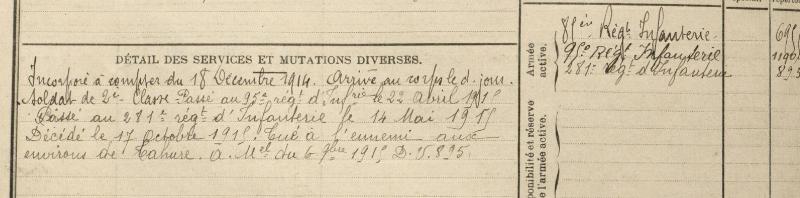 DÉTAIL DES SERVICES ET MUTATIONS DIVERSES.
Incorporé à compter du 18 Décembre 1914. Arrivé au corps le d. jour.
Soldat de 2e Classe Passé au 95e régt d'Infrie le 22 avril 1915
Passé au 281e régt d'Infanterie le 14 Mai 1915
Décédé le 17 Octobre 1915 Tué à l'ennemi aux
environs de Tahure. à Mel du 6 9bre 1915 D.V. 895.
Armée
active.
85e Régt Infanterie
95e Régt Infanterie
281e régt d'Infanterie
695
1190
895
ponibilité et réserve
e l'armée active.